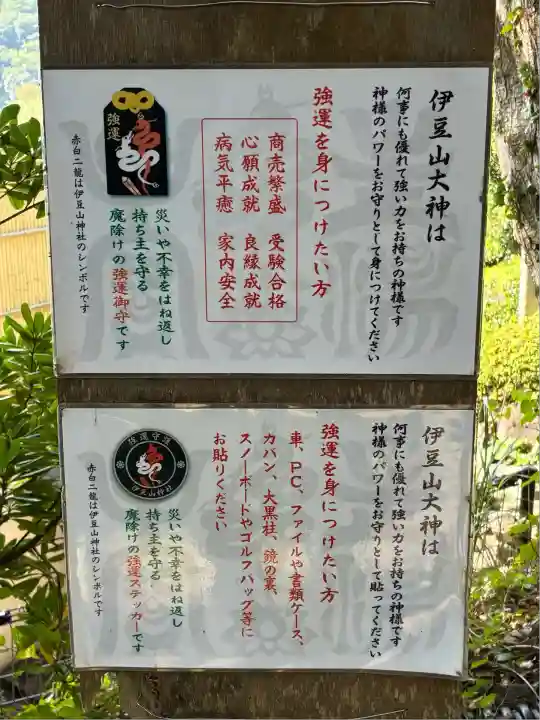 伊豆山大神は
何事にも優れて強い力をお持ちの神様です
神様のパワーをお守りとして身につけてください
強運を身につけたい方
商売繁盛 受験合格
心願成就 良縁成就
病気平癒 家内安全
強運
災いや不幸をはね返し
持ち主を守る
魔除けの強運御守です
赤白二龍は伊豆山神社のシンボルです
伊豆山大神は
何事にも優れて強い力をお持ちの神様です
神様のパワーをお守りとして貼ってください
強運を身につけたい方
車、PC、ファイルや書類ケース、
カバン、大黒柱、鏡の裏、
スノーボードやゴルフバッグ等に
お貼りください
強運守護
伊豆山神社
災いや不幸をはね返し
持ち主を守る
魔除けの強運ステッカーです
赤白二龍は伊豆山神社のシンボルです